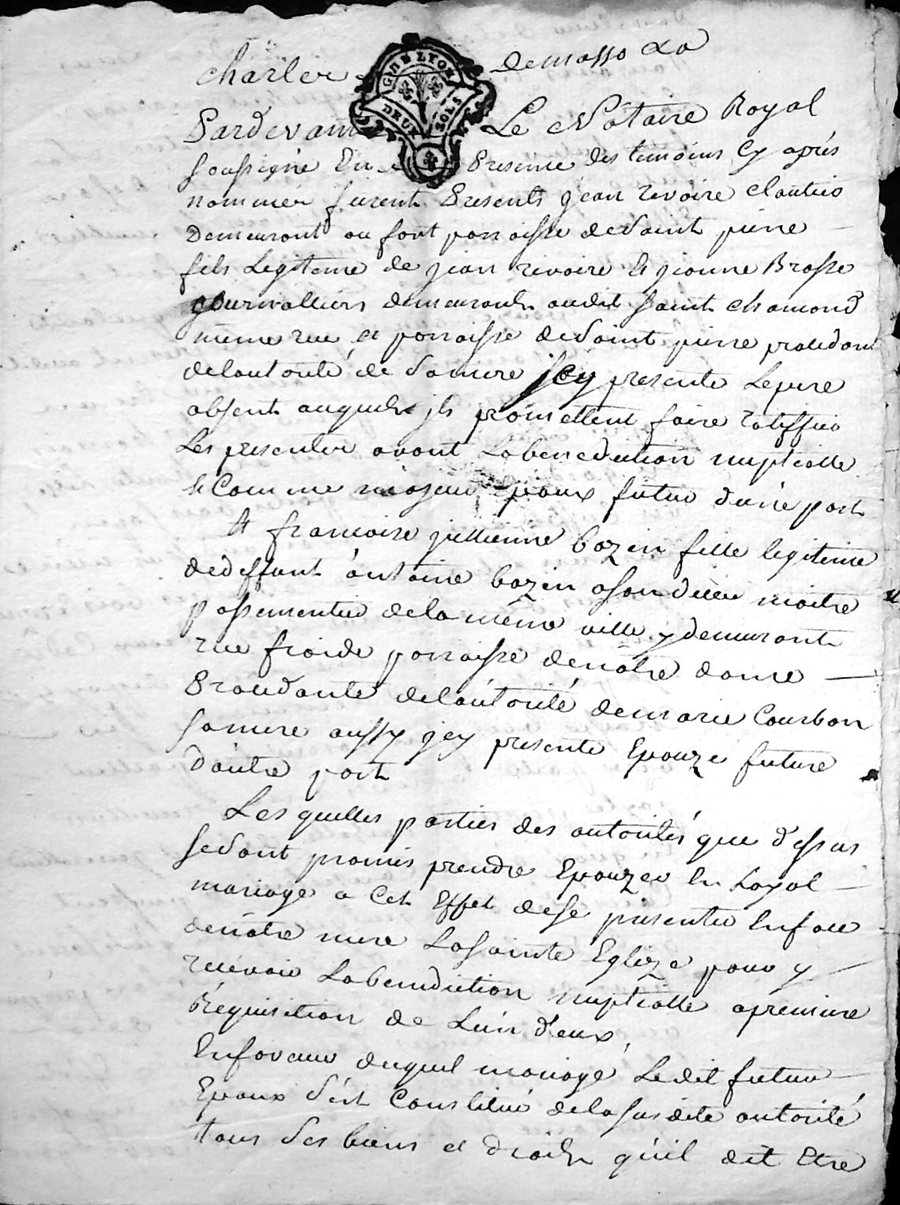 charles demasso
G. DE LYON
DEUX SOLS
Pardevant Le Notaire Royal
soussigné En Presence des temoins Cy après
nommés furent Presents jean revoire cloutier
Demeurant au fort parroisse de Saint pierre
fils Legiteme de jean revoire & jeanne Brosse
demeurants audit Saint chamond
même rue et parroisse de Saint pierre procedant
delautorité de Samere jcy presente Lepere
absent auquel jls promettent faire ratiffier
Les presentes avant Labenediction nuptialle
& Comme majeur Epoux futur dune part
Et francoise jullienne bazin fille legiteme
dedeffunt antoine bazin asondeceu maitre
passementier delamême ville y demeurant
rue froide parroisse denotre dame
Procedante delautorité demarie Courbon
samere aussy jcy presente Epouze future
d'autre part
Les quelles parties des autorités que d'essus
sesont promis prendre Epouzer En Loyal
mariage a Cet Effet dese presenter Enface
denotre mere Lasainte Eglize pour y
recevoir Labenediction nuptialle apremiere
Requisition de Lun d'eux,
Enfaveur duquel mariage Ledit futur
Epoux s'est Constitué delasusdite autorité
tous ses biens et droits qu'il dit Etre